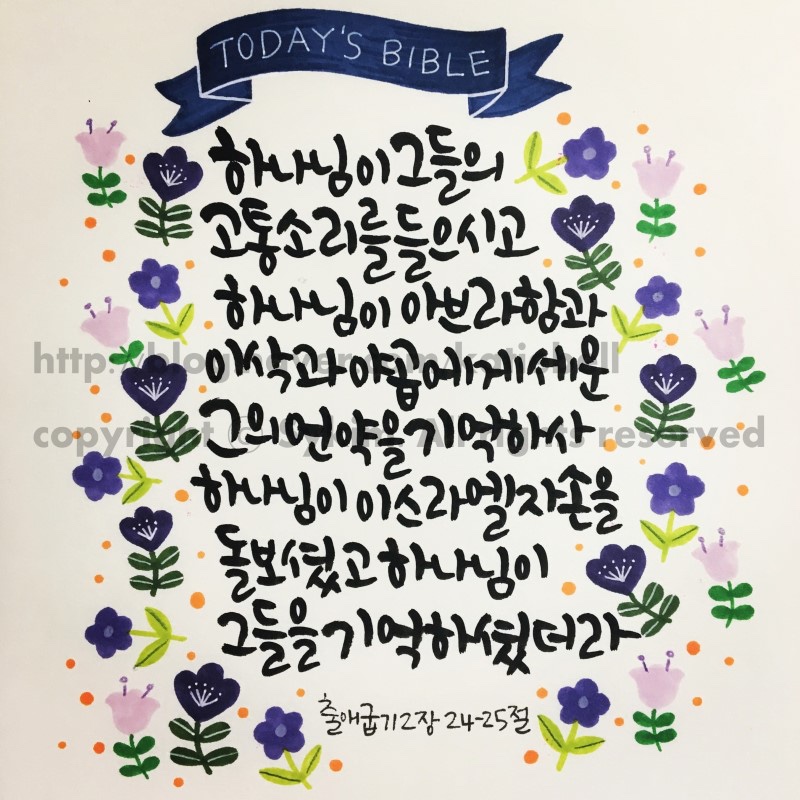 TODAY'S BIBLE
하나님이 그들의
고통소리를 들으시고
하나님이 아브라함과
이삭과 야곱에게 세운
그의 언약을 기억하사
하나님이 이스라엘 자손을
돌보셨고 하나님이
그들을 기억하셨더라
출애굽기 2장 24-25절
http://blog.naver.com/
copyright ⓒ All rights reserved